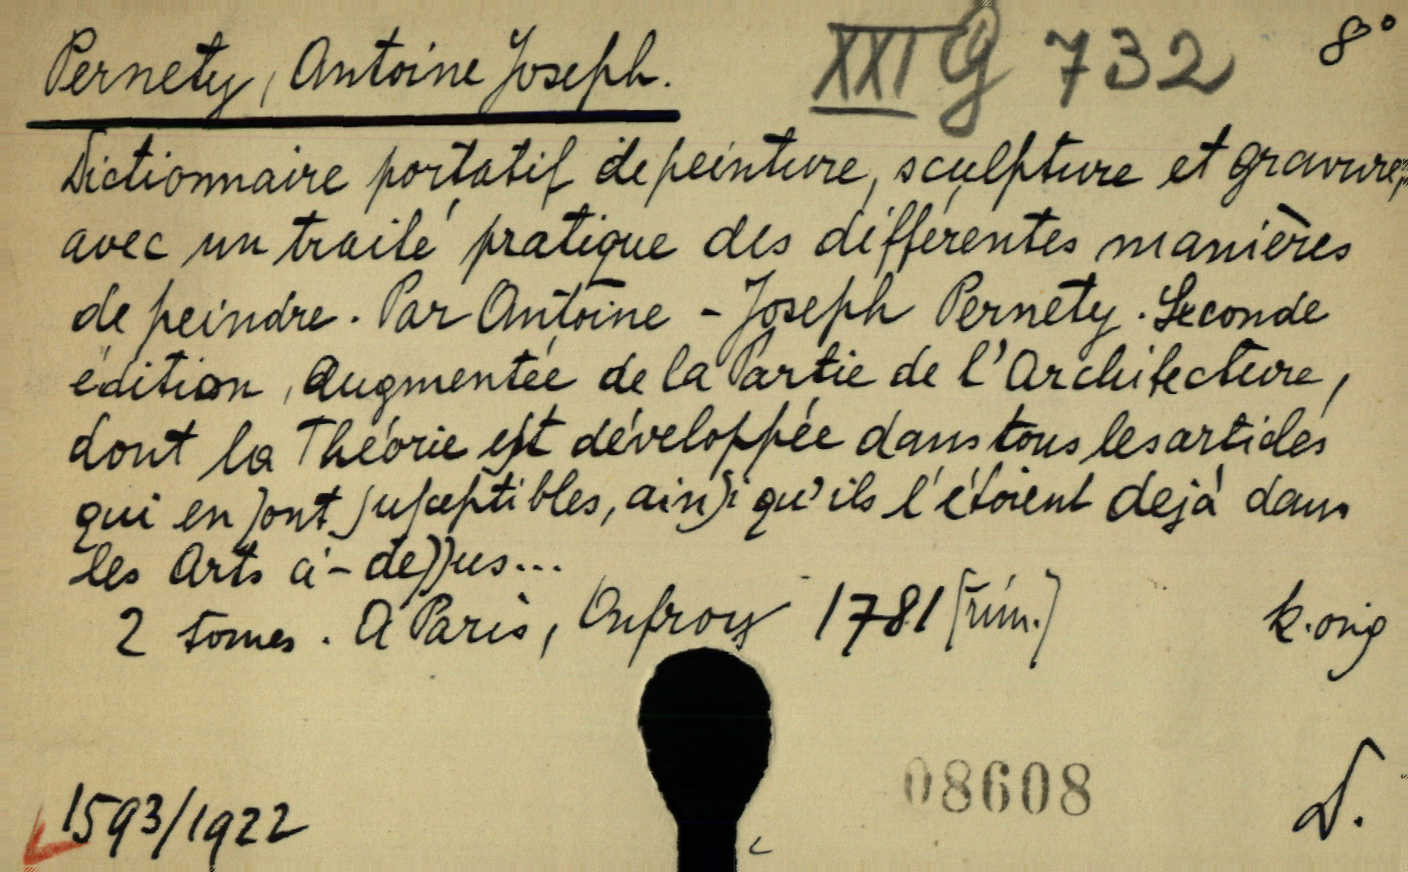 Pernety, Antoine Joseph. XXI G 732 8°
Dictionnaire portatif de peinture, sculpture et gravure,
avec un traité pratique des différentes manières
de peindre. Par Antoine-Joseph Pernety. Seconde
édition, augmentée de la Partie de l'Architecture,
dont la Théorie eſt développée dans tous les articles
qui en ſont ſuſceptibles, ainſi qu'ils l'étoient dejà dans
les Arts ci-deſſus...
2 tomes. A Paris, Onfroy 1781 [rim.] k. orig
08608
1593/1922 D.